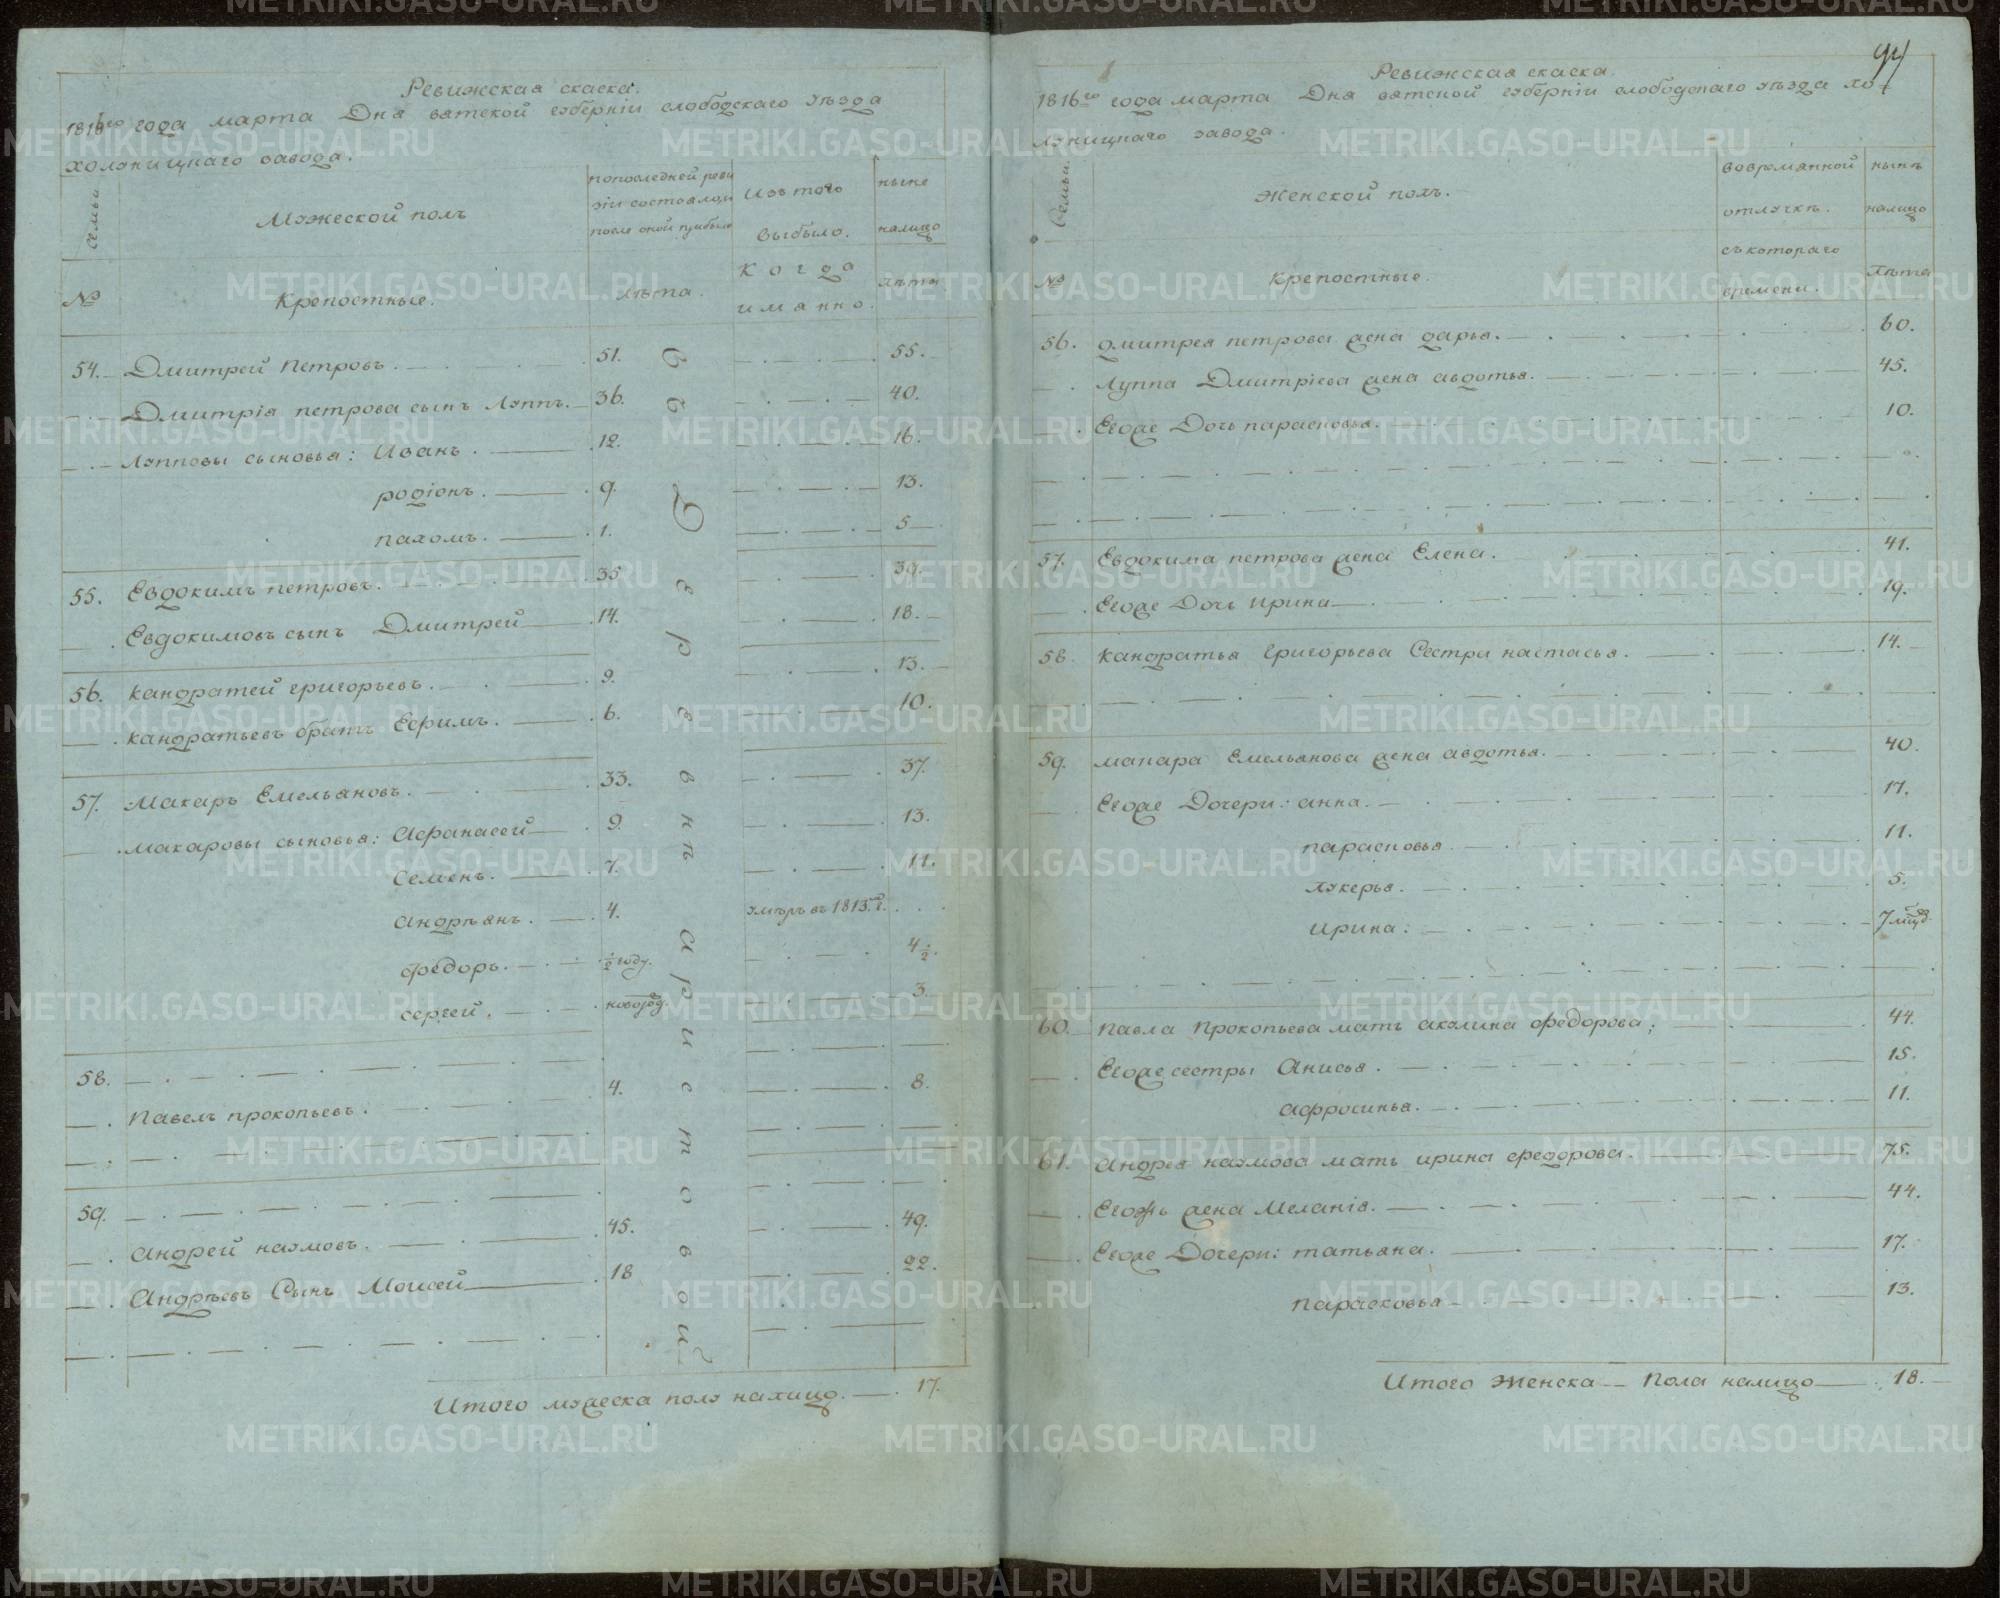 Ревижская скаска.
1816го года марта Дня вятской губерніи слободскаго уѣзда
холуницкаго завода.
Семьи
Мужеской полъ
попоследней реви
зіи состояло,и
после оной прибыло
Изъ того
выбыло.
ныне
налицо
№
Крепостные.
лѣта.
когда
иманно.
лѣта
54. Дмитрей Петровъ. 51. 55.
Дмитрія петрова сынъ Луппъ. 36. 40.
Лупповы сыновья: Иванъ. 12. 16.
родіонъ. 9. 13.
пахомъ. 1. 5
55. Евдокимъ петровъ. 35 39.
Евдокимовъ сынъ Дмитрей 14. 18.
56. кандратей григорьевъ. 9. 13.
кандратьевъ братъ Ефримъ. 6. 10.
57. Макаръ Емельяновъ. 33. 37.
макаровы сыновья: Афанасей 9. 13.
Семенъ. 7. 11.
андрѣянъ. 4. умѣръ въ 1813мг.
федоръ. ½ году. 4½.
сергей. новород. 3
58.
Павелъ прокопьевъ. 4. 8.
59.
андрей наумовъ. 45. 49.
Андрѣевъ Сынъ Моисей 18 22.
В ъ Д е р е в н ѣ а р и с т о в о й
Итого мужеска полу налицо. 17.
94
Ревижская скаска.
1816го года марта Дня вятской губерніи слободскаго уѣзда хо-
луницкаго завода.
Семьи
Женской полъ.
вовремянной
отлучкѣ.
нынѣ
налицо
№
Крепостные.
съкотораго
времени.
лѣта
56. дмитрея петрова жена дарья. 60.
Луппа Дмитріева жена авдотья. 45.
Егоже Дочь парасковья. 10.
57. Евдокима петрова жена Елена. 41.
Егоже Дочь ирина 19.
58. кандратья григорьева Сестри настасья. 14.
59. макара Емельянова жена авдотья. 40.
Егоже Дочери: анна. 17.
парасковья 11.
лукерья. 5.
ирина: 7 мсцов
60. павла Прокопьева мать акулина федорова; 44.
Егоже сестры Анисья. 15.
афросинья. 11.
61. андрея наумова мать ирина федорова. 75.
Егожъ жена Меланія. 44.
Егоже Дочери: татьяна. 17.
Парасковья 13.
Итого Женска Пола налицо 18.
METRIKI.GASO-URAL.RU